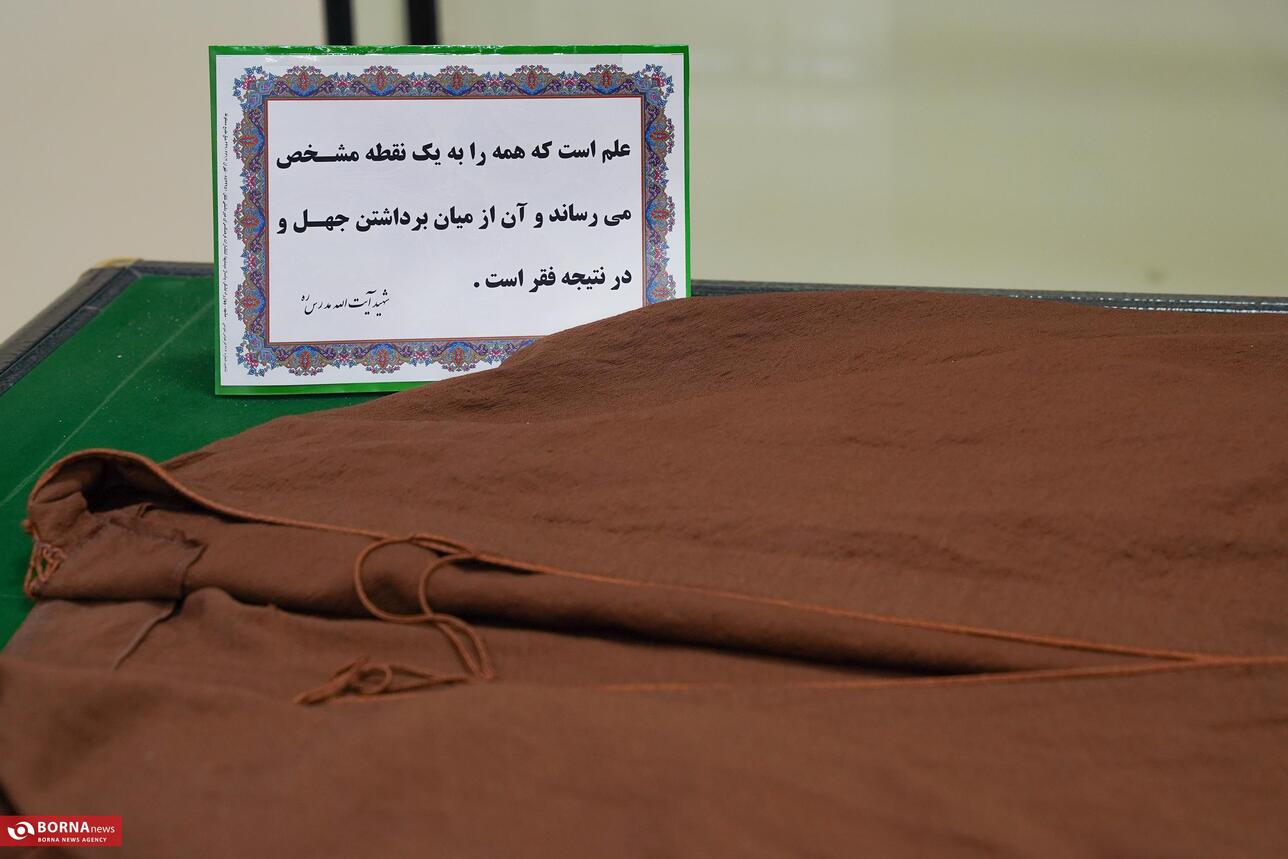 علم است که همه را به یک نقطه مشـخص
می رساند و آن از میان برداشتن جهـل و
در نتیجه فقر است .
شهید آیت الله مدرس ره
BORNA news
BORNA NEWS AGENCY